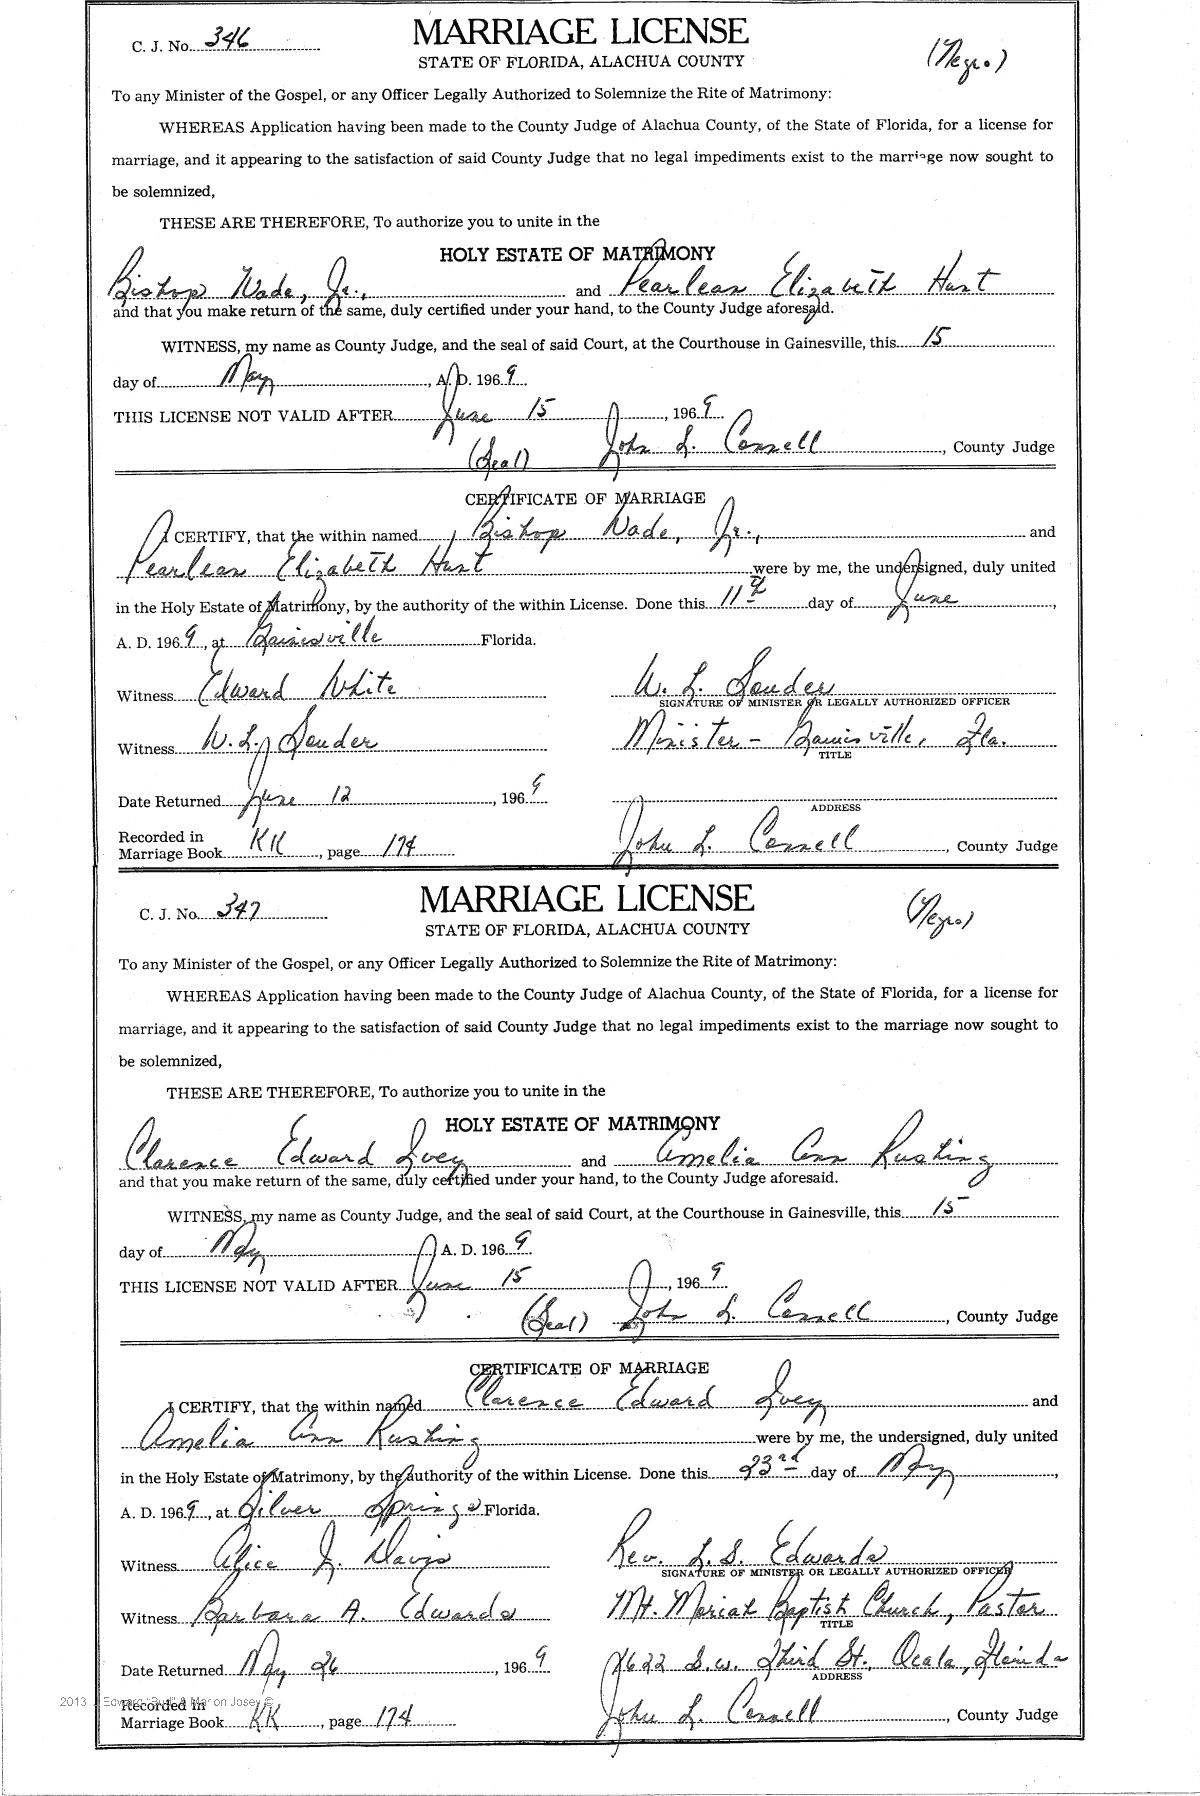 C. J. No. 346
MARRIAGE LICENSE
(Negro)
STATE OF FLORIDA, ALACHUA COUNTY
To any Minister of the Gospel, or any Officer Legally Authorized to Solemnize the Rite of Matrimony:
WHEREAS Application having been made to the County Judge of Alachua County, of the State of Florida, for a license for
marriage, and it appearing to the satisfaction of said County Judge that no legal impediments exist to the marriage now sought to
be solemnized,
THESE ARE THEREFORE, To authorize you to unite in the
HOLY ESTATE OF MATRIMONY
Bishop Wade, Jr., and Pearlean Elizabeth Hunt
and that you make return of the same, duly certified under your hand, to the County Judge aforesaid.
WITNESS, my name as County Judge, and the seal of said Court, at the Courthouse in Gainesville, this 15
day of May, A. D. 1969
THIS LICENSE NOT VALID AFTER June 15, 1969
(Seal) John L. Connell, County Judge
CERTIFICATE OF MARRIAGE
I CERTIFY, that the within named Bishop Wade, Jr., and
Pearlean Elizabeth Hunt were by me, the undersigned, duly united
in the Holy Estate of Matrimony, by the authority of the within License. Done this 11th day of June,
A. D. 1969, at Gainesville Florida.
Witness Edward White W. L. Souder
SIGNATURE OF MINISTER OR LEGALLY AUTHORIZED OFFICER
Witness W. L. Souder Minister - Gainesville, Fla.
TITLE
Date Returned June 12, 1969
ADDRESS
Recorded in
Marriage Book KK, page 174 John L. Connell, County Judge
C. J. No. 347
MARRIAGE LICENSE
(Negro)
STATE OF FLORIDA, ALACHUA COUNTY
To any Minister of the Gospel, or any Officer Legally Authorized to Solemnize the Rite of Matrimony:
WHEREAS Application having been made to the County Judge of Alachua County, of the State of Florida, for a license for
marriage, and it appearing to the satisfaction of said County Judge that no legal impediments exist to the marriage now sought to
be solemnized,
THESE ARE THEREFORE, To authorize you to unite in the
HOLY ESTATE OF MATRIMONY
Clarence Edward Ivey and Amelia Ann Rushing
and that you make return of the same, duly certified under your hand, to the County Judge aforesaid.
WITNESS, my name as County Judge, and the seal of said Court, at the Courthouse in Gainesville, this 15
day of May A. D. 1969
THIS LICENSE NOT VALID AFTER June 15, 1969
(Seal) John L. Connell, County Judge
CERTIFICATE OF MARRIAGE
I CERTIFY, that the within named Clarence Edward Ivey and
Amelia Ann Rushing were by me, the undersigned, duly united
in the Holy Estate of Matrimony, by the authority of the within License. Done this 23rd day of May,
A. D. 1969, at Silver Springs Florida.
Witness Alice J. Davis Rev. L. S. Edwards
SIGNATURE OF MINISTER OR LEGALLY AUTHORIZED OFFICER
Witness Barbara A. Edwards Mt. Moriah Baptist Church, Pastor
TITLE
Date Returned May 26, 1969 1622 S.W. Third St., Ocala, Florida
ADDRESS
2013 J Edward "Bud" & Marion Josey ©
Recorded in
Marriage Book KK, page 174 John L. Connell, County Judge